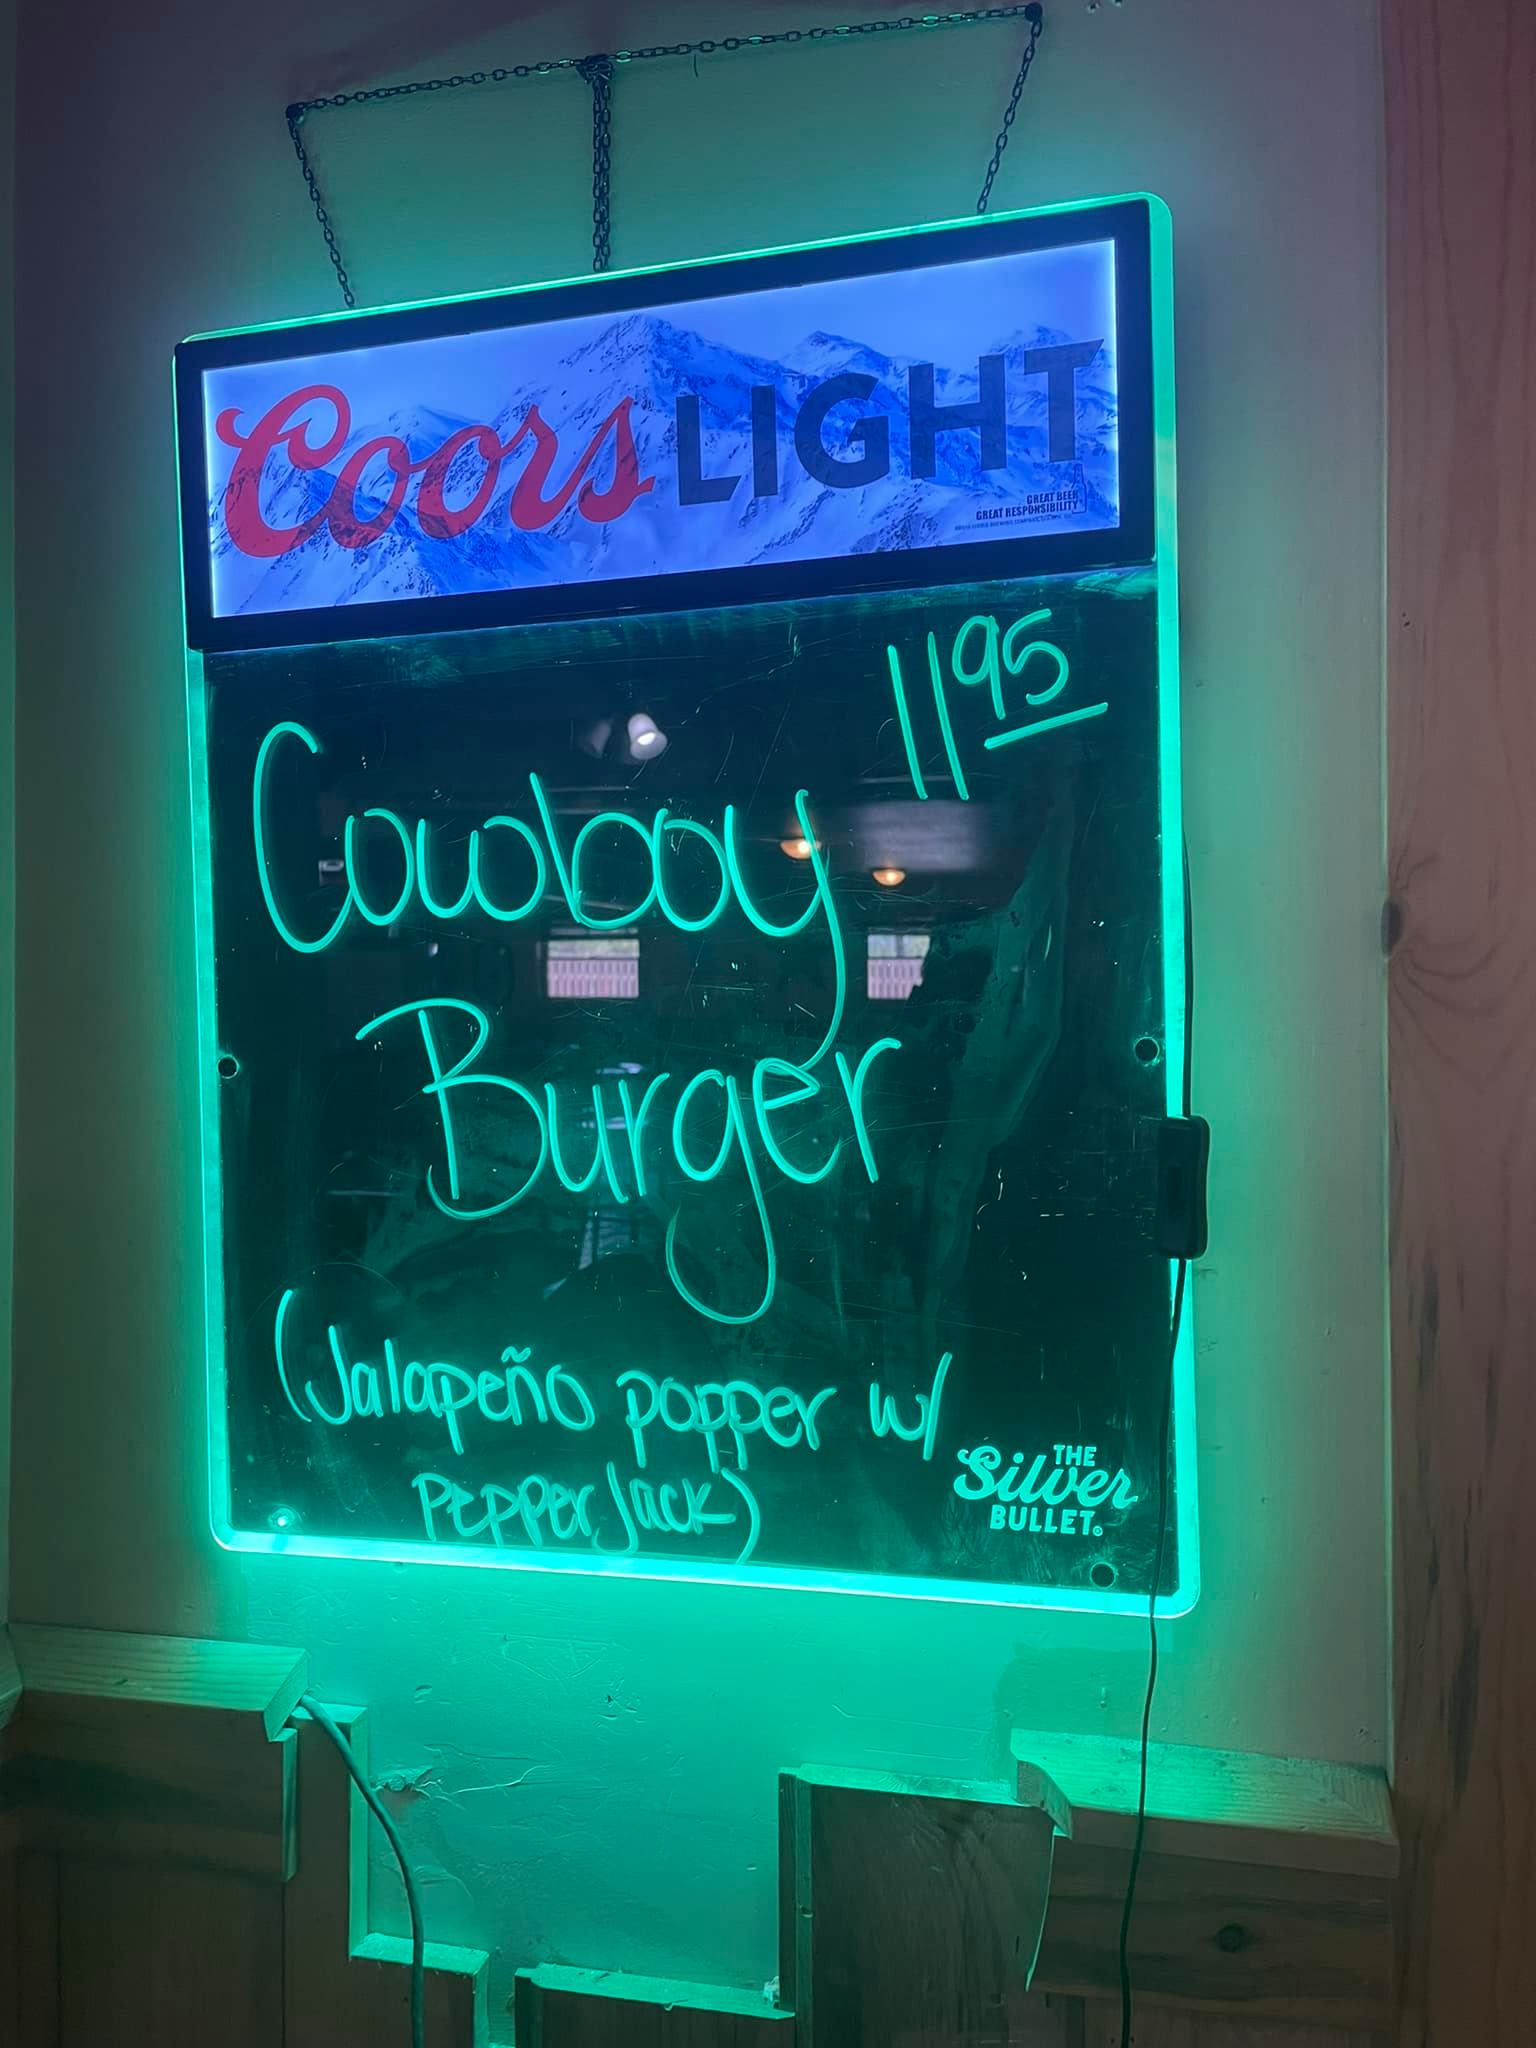 Coors LIGHT
GREAT BEER
GREAT RESPONSIBILITY
11 95
Cowboy
Burger
(Jalapeño popper w/
PEPPER Jack)
THE
Silver
BULLET.